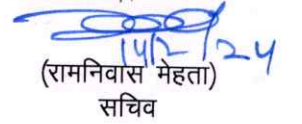 14/2/24
(रामनिवास मेहता)
सचिव